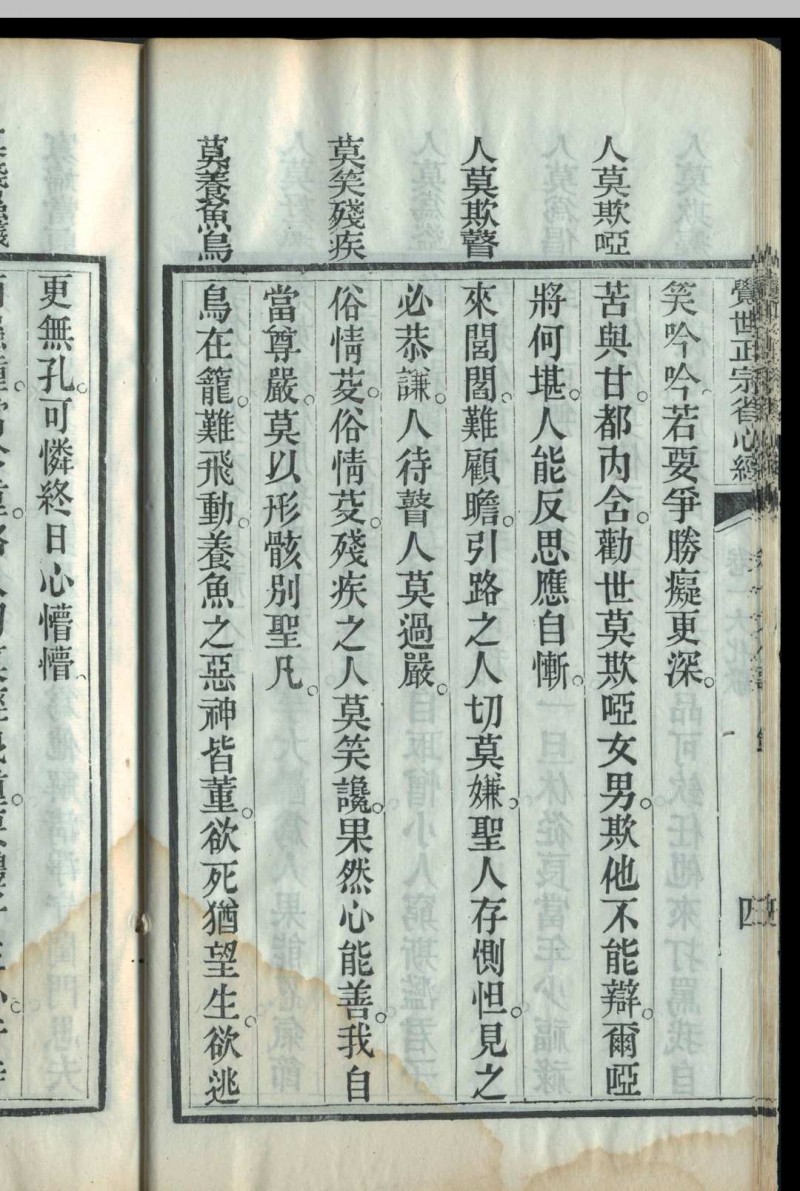 覺世正宗省心經
笑吟吟。若要爭勝癡更深。
人莫欺啞
苦與甘。都內含。勸世莫欺啞女男。欺他不能辯。爾啞
將何堪。人能反思應自慚。
人莫欺瞽
來閭閻。難顧瞻。引路之人切莫嫌。聖人存惻怛。見之
必恭謙。人待瞽人莫過嚴。
莫笑殘疾
俗情芟。俗情芟。殘疾之人莫笑讒。果然心能善。我自
當尊嚴。莫以形骸別聖凡。
莫養魚鳥
鳥在籠。難飛動。養魚之惡神皆董。欲死猶望生。欲逃
更無孔。可憐終日心懵懵。